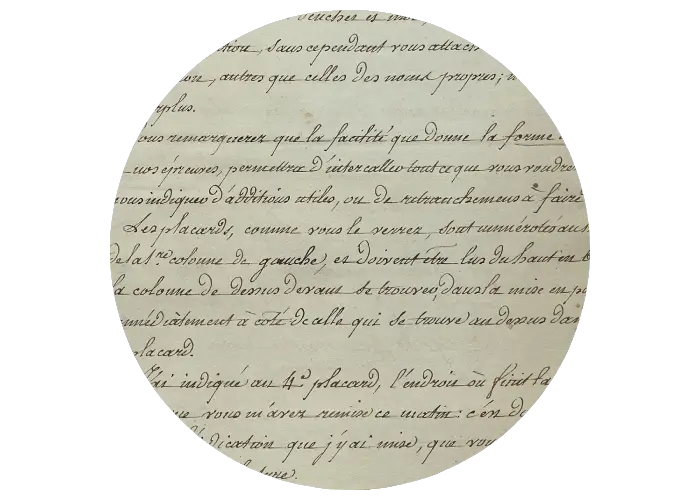 bouches et
tion, sans cependant vous attach
ion, autres que celles des noms propres;
rplus.
ous remarquerez que la facilité que donne la forme
nos épreuves, permettra d'intercaller tout ce que vous voudrez
nous indiquer d'additions utiles, ou de retranchemens à faire
Les placards, comme vous le verrez, sont numérotés au
de la 1re colonne de gauche, et doivent être lus du haut en b
la colonne de dessus devant se trouver, dans la mise en pa
immédiatement à côté de celle qui se trouve au dessus dan
placard.
J'ai indiqué au 4e placard, l'endroit où finit la
que vous m'avez remise ce matin: c'en d
dication que j'y ai mise, que vou